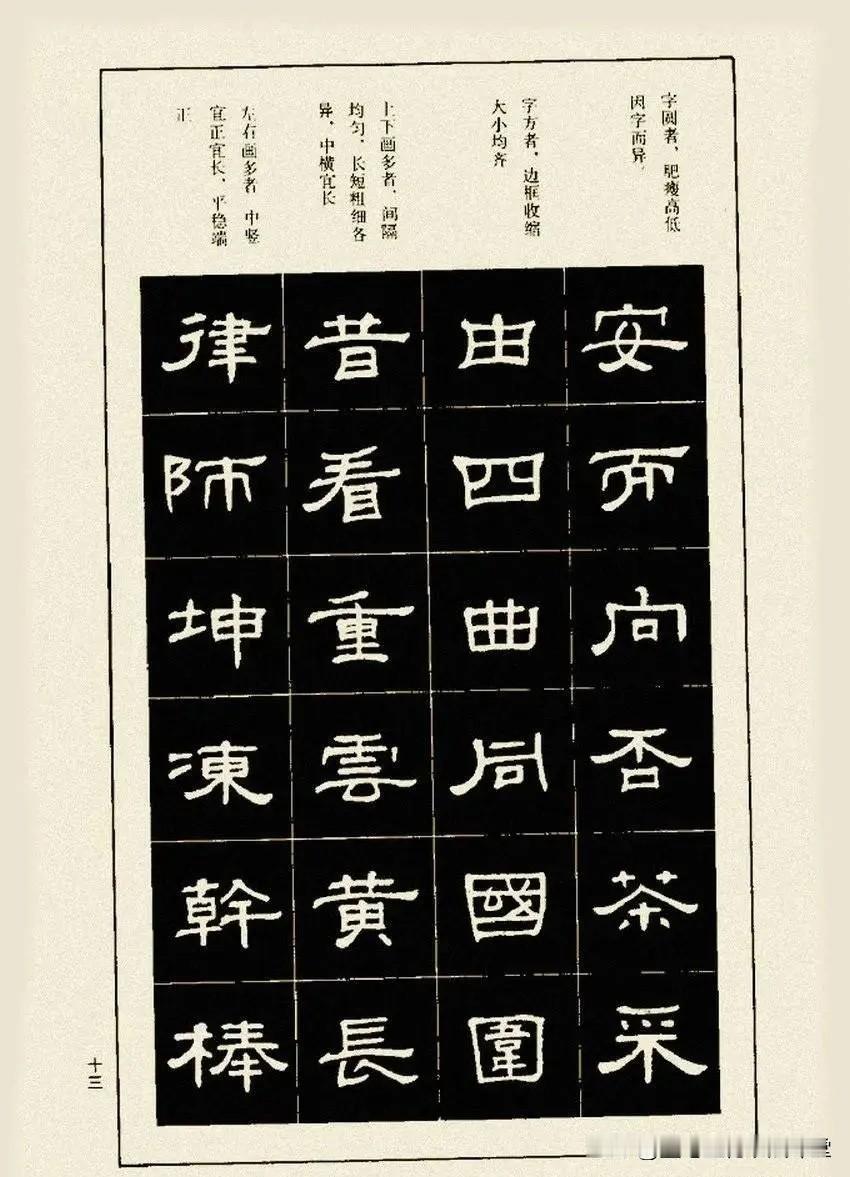 字圆者，肥瘦高低
因字而异。
字方者，边框收缩
大小均齐
上下画多者，间隔
均匀、长短粗细各
异，中横宜长
左右画多者 中竖
宜正宜长、平稳端
正
安而向否茶采
由四曲同國圍
昔看重雲黄長
律師坤凍幹棒
十三